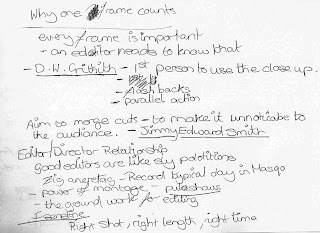 Why one frame counts
every frame is important
- an editor needs to know that
- D.W. Griffith - 1st person to use the close up.
- flash backs
- parallel action
Aim to merge cuts - to make it unnoticable to
the audience. - Jimmy Edward Smith
Editor/Director Relationship
good editors are like sly politicians
- Record typical day in Masqo
- power of montage -
- the ground work for editing
Right shot, right length, right time